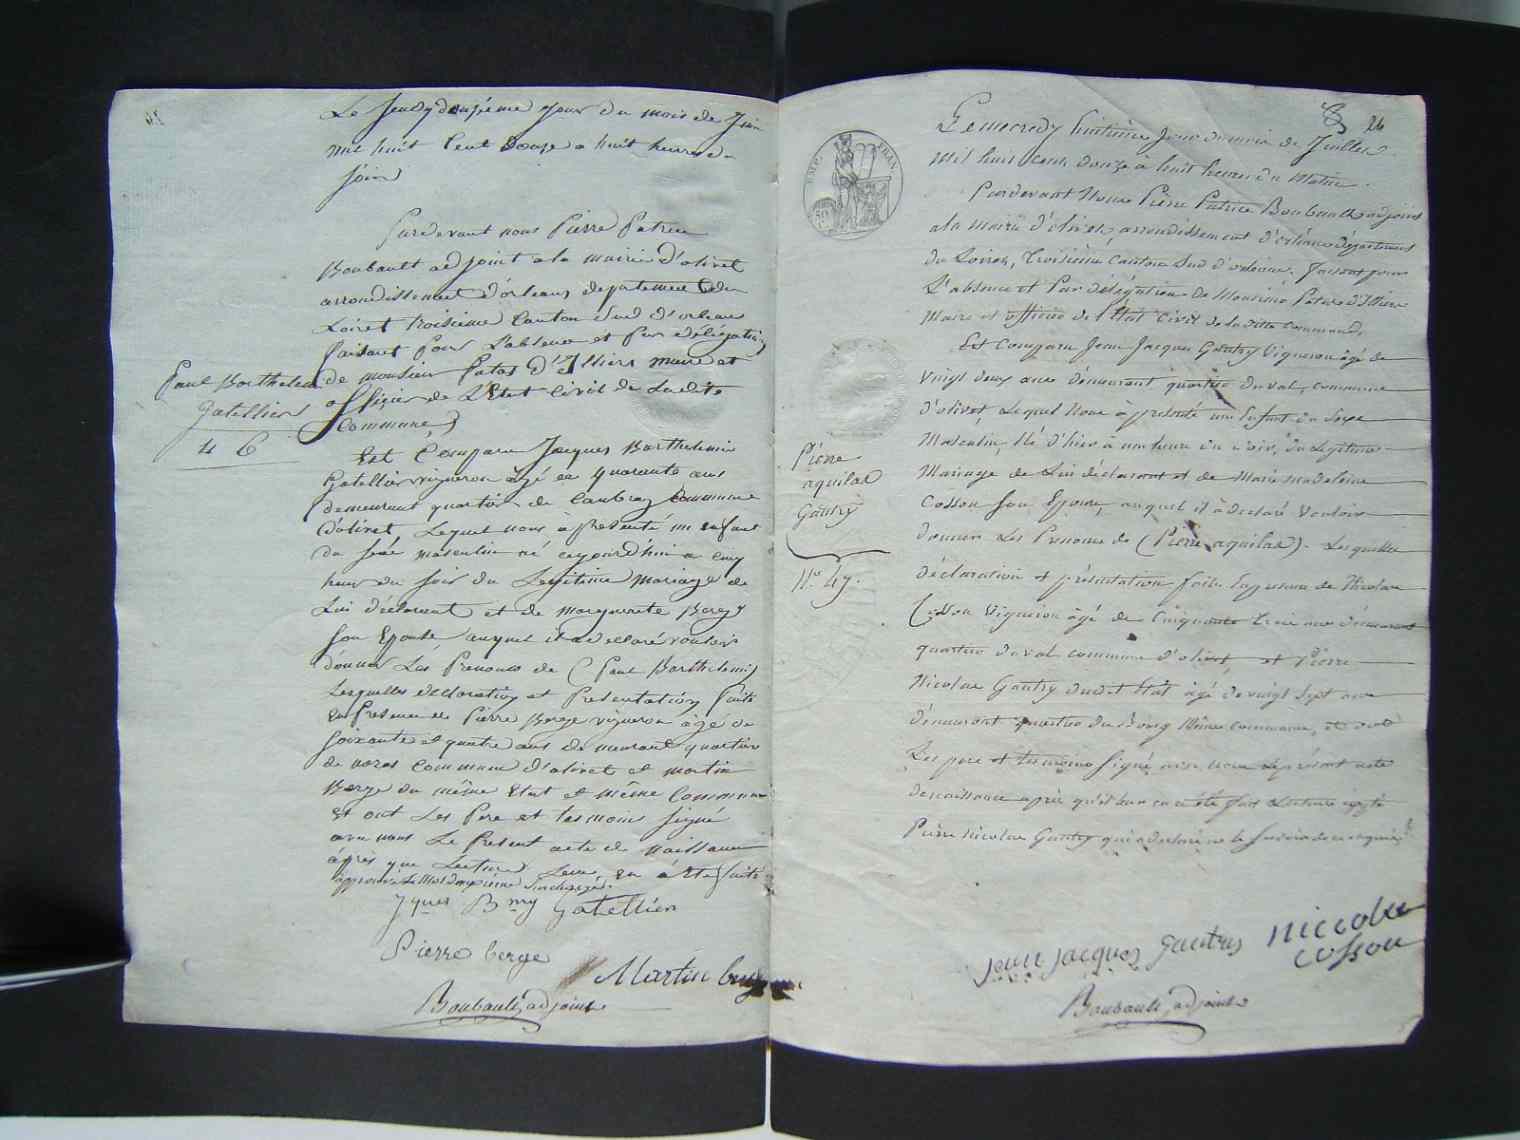 Le Jeudy douzieme Jour du mois de Juin
mil huit Cent Douze a huit heures du
Soir
Pardevant nous Pierre Patrice
Boubault adjoint a la mairie d'olivet
arrondissement d'orleans departement du
Loiret troisieme Canton Sud d'orleans
faisant pour L'absence et Par délégation
de monsieur Patas D'Illiers maire et
officier de L'Etat Civil de Ladite
Commune
Paul Barthelemi
Gatellier
46
Est Comparu Jacques Barthelemi
Gatellier vigneron âgé de quarante ans
demeurant quartier de Caubray Commune
d'olivet Lequel nous à Présenté un enfant
du sexe masculin né aujourd'hui a cinq
heures du soir du Legitime Mariage de
Lui déclarant et de Marguerite Bergé
son Epouse auquel il a declaré vouloir
donner Les Prenoms de (Paul Barthelemi)
Lesquelles declaration et Presentation faite
en Presence de Pierre Berge vigneron âgé de
soixante et quatre ans demeurant quartier
de commune d'olivet et martin
Berge du même Etat et même Commune
Et ont Les Pere et temoins signé
avec nous Le Present acte de naissance
après que Lecture Leur en a été faite
approuvé Le Mot douzieme surchargé.
Jques Bmy gatellier
Pierre berge
Martin berge
Boubault, adjoint
26
EMP. FRAN.
Le mercredy huitieme Jour du mois de Juillet
mil huit cent douze à huit heures du Matin.
Pardevant Nous Pierre Patrice Boubault adjoint
a la Mairie d'olivet, arrondissement d'orléans département
du Loiret, troisieme Canton Sud d'orléans. Faisant pour
L'absence et Par délégation de Monsieur Patas d'Illiers
Maire et officier de l'état Civil de la ditte commune
Est Comparu Jean Jacques Gautry Vigneron âgé de
vingt deux ans demeurant quartier du val, commune
d'olivet, Lequel Nous à présenté un Enfant du Sexe
Masculin, Né d'hier à une heure du soir, du Legitime
Mariage de Lui déclarant et de Marie madeleine
Cosson son Epouse, auquel il à déclaré Vouloir
donner Les Prenoms de (Pierre aquilas). Lesquelles
déclaration et présentation faites En présence de Nicolas
Cosson Vigneron âgé de Cinquante trois ans demeurant
quartier du val commune d'olivet, et Pierre
Nicolas Gautry dudit Etat âgé de vingt sept ans
demeurant quartier du Bourg Même commune, et ont
Les pere et temoins signé avec nous Le présent acte
de naissance après qu'il leur en a été fait Lecture excepté
Pierre nicolas Gautry qui a declaré ne le savoir de ce requis.
Pierre
aquilas
Gautry
No. 47.
jean jacques gautry niccolas
cosson
Boubault, adjoint